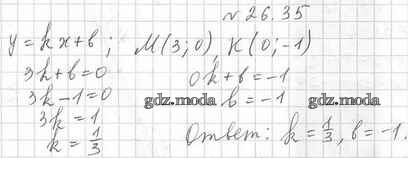 № 26.35
y = kx + b; M(3; 0), K(0; -1)
3k + b = 0
0k + b = -1
3k - 1 = 0
b = -1
gdz.moda
gdz.moda
3k = 1
k = 1/3
Ответ: k = 1/3, b = -1.